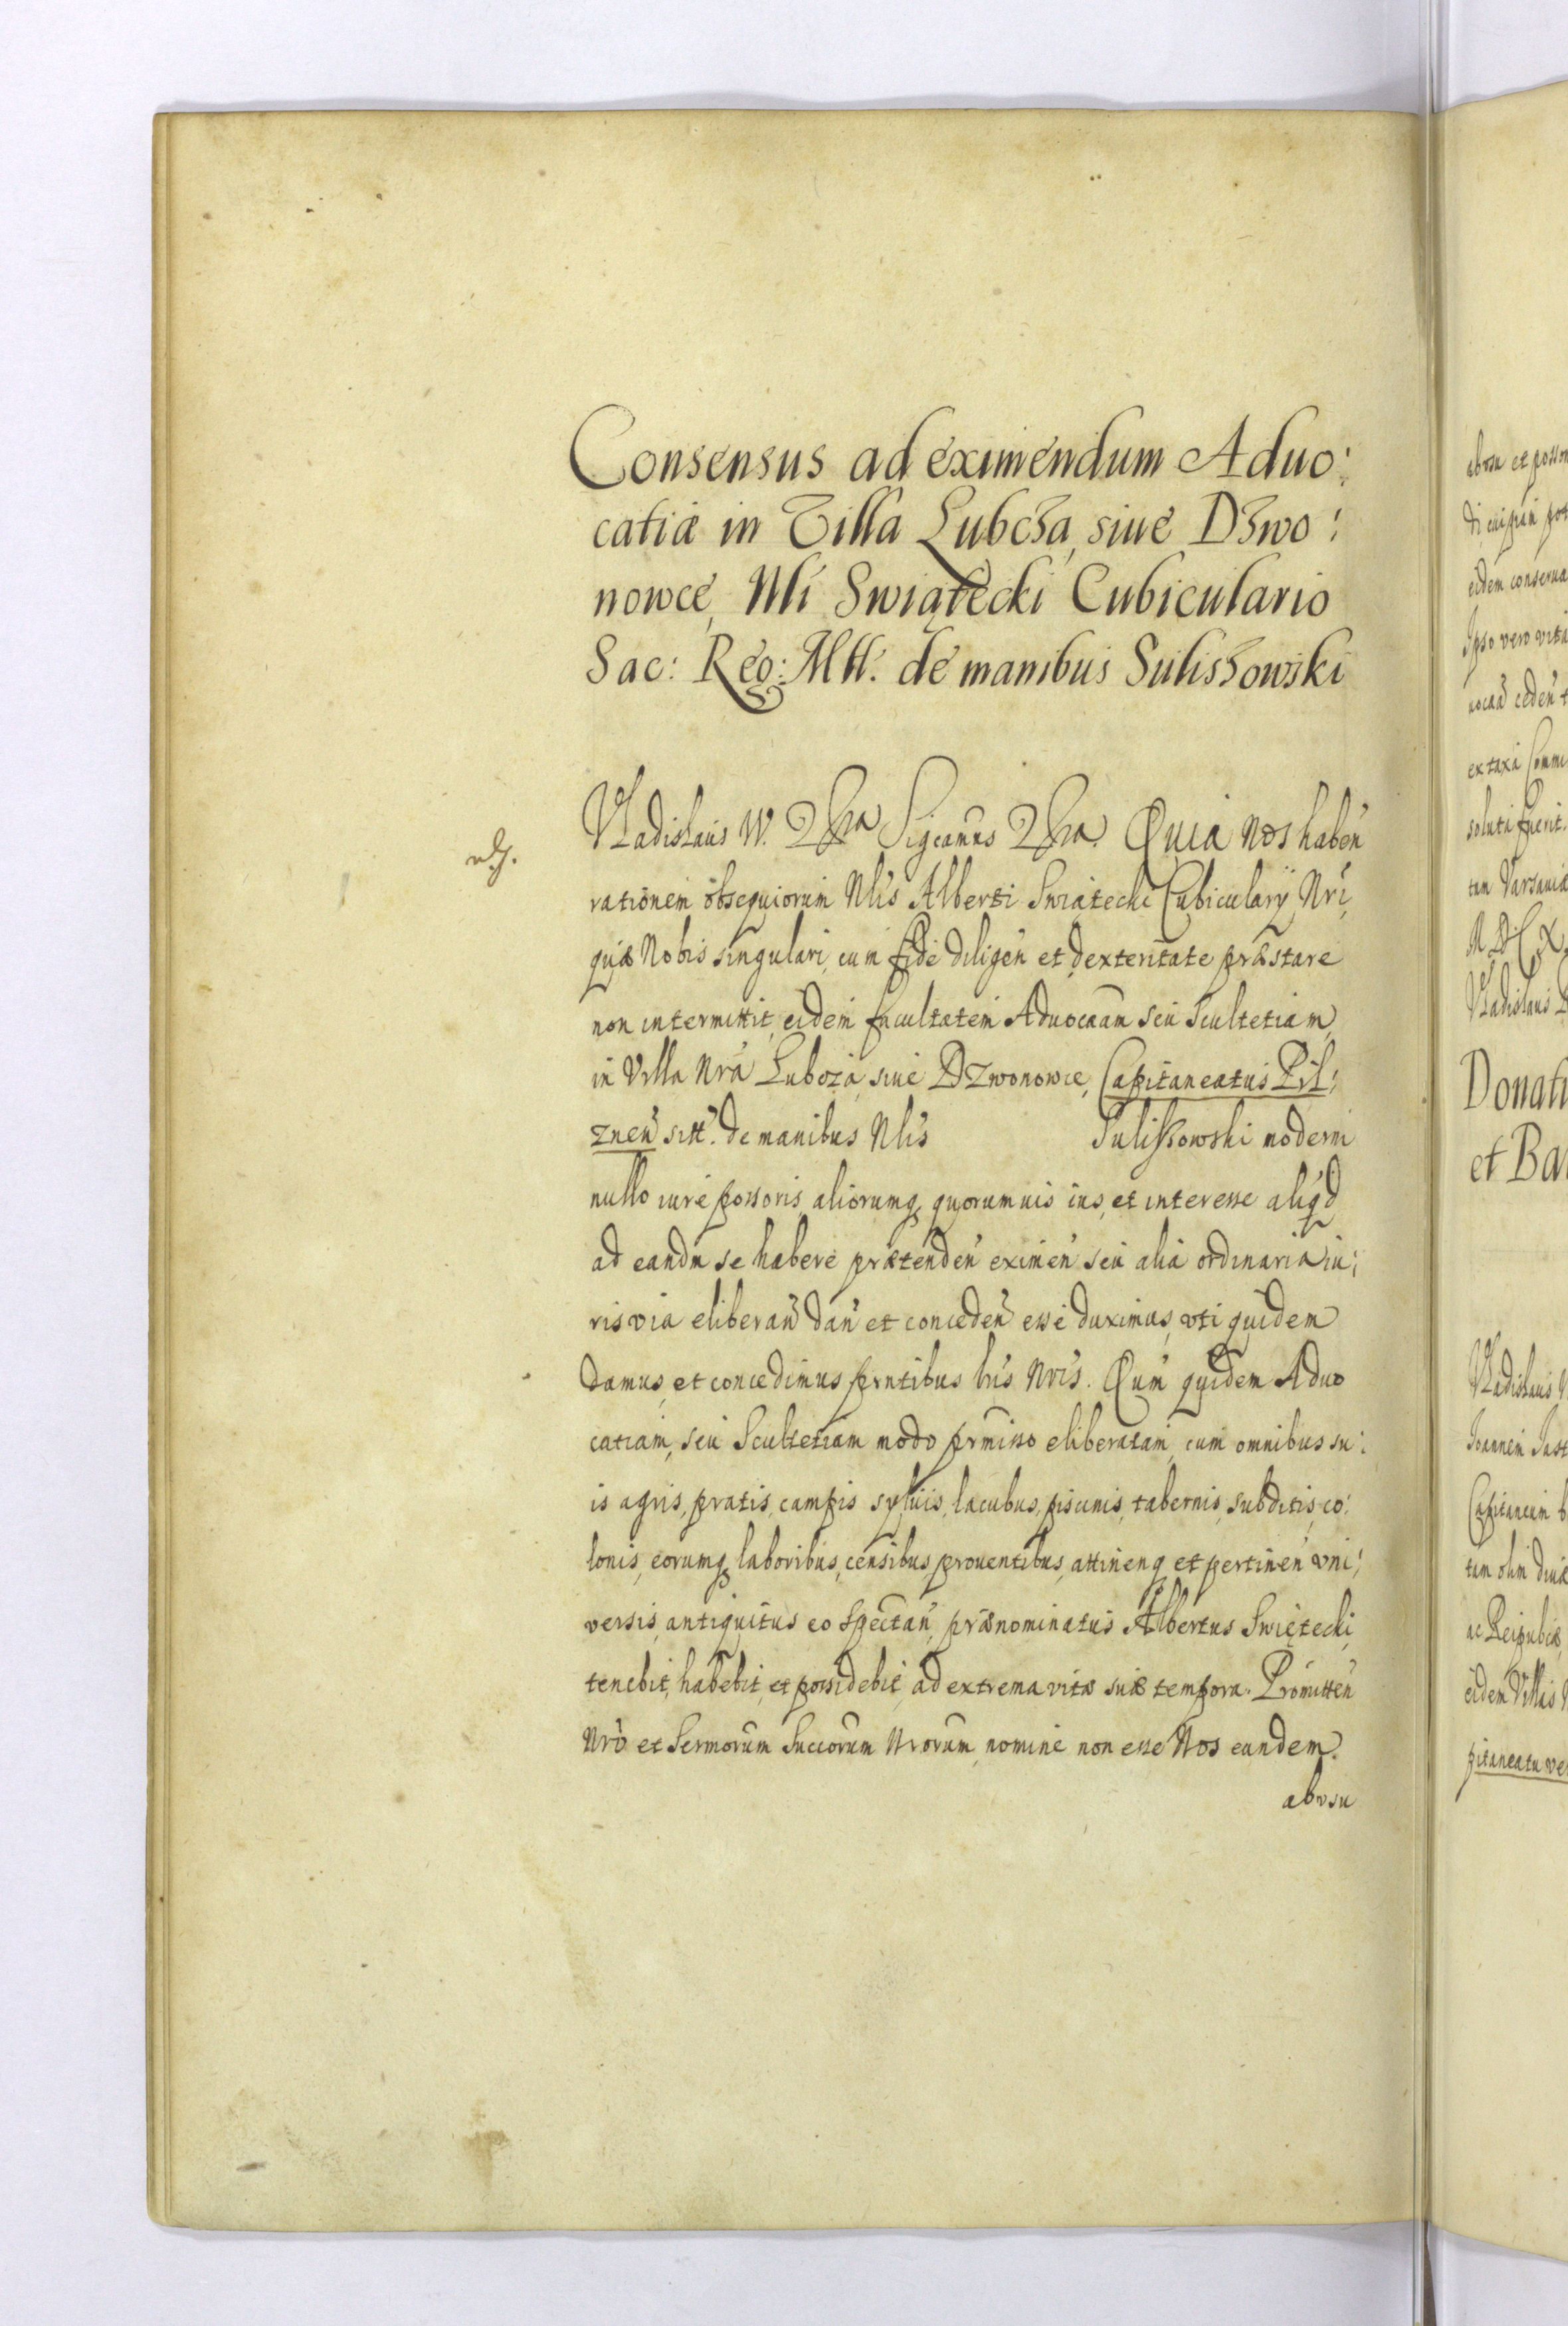 Consensus ad eximendum Aduo:
catiæ in Villa Lubcza, siue Dzwo:
nowce, Nli Swiątecki Cubiculario
Sac: Reg: Mtt. de manibus Suliszowski
Vladislaus IV. Sigcamus Quia Nos haben
rationem obsequiorum Nlis Alberti Swiątecki Cubiculary Nri,
quæ Nobis singulari, cum fide diligen et dexteritate præstare
non intermittit, eidem facultatem Aduocaam seu Scultetiam,
in Villa Nra Lubcza, siue Dzwonowce, Capitaneatus Pil:
znen sitt. de manibus Nlis Sulissowski moderni
nullo iure possoris, aliorumq quorumuis ius, et interesse aliqd
ad eandm se habere prætenden eximen seu alia ordinaria iu:
ris via eliberan dan et conceden esse duximus, vti quidem
damus, et concedimus prntibus lris Nris. Qum quidem Aduo
catiam, seu Scultetiam modo prmisso eliberatam, cum omnibus su:
is agris, pratis, campis syluis, lacubus, piscinis, tabernis, subditis, co:
lonis, eorumq laboribus, censibus, prouentibus, attinenq et pertinen vni:
versis, antiquitus eo spectan, prænominatus Albertus Swiętecki,
tenebit, habebit, et possidebit, ad extrema vitæ suæ tempora. Promitten
Nro et Sermorum Succorum Nrorum, nomine non esse Nos eundem.
abvsu
abvsu et posson
di cuipin pot
eidem conserua
Ipso vero vita
uocaa ceden t
ex taxa Commi
soluta fuerit.
tum Varsauiæ
Vladislaus
Donati
et Bar
Vladislaus
Ioannem Iust
Capitaneum b
tum olim diuæ
ac Reipublicæ
eidem Villas
pitaneatu ve